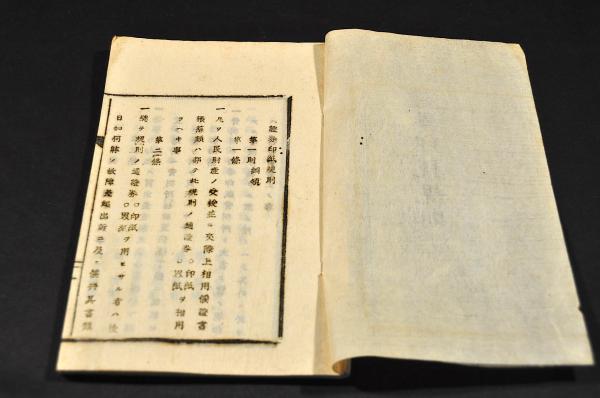 證券印紙規則
第一則 綱領
第一條
一凡ソ人民財産ノ受授並ニ交際上相用候證書
帳簿類ハ都テ此規則ノ通證券〇印紙〇界紙ヲ相用
フヘキ事
第二條
一總テ規則ノ通證券〇印紙〇界紙ヲ用ヒサル者ハ後
日如何躰ノ故障差起出訴ニ及ヒ候共其書類